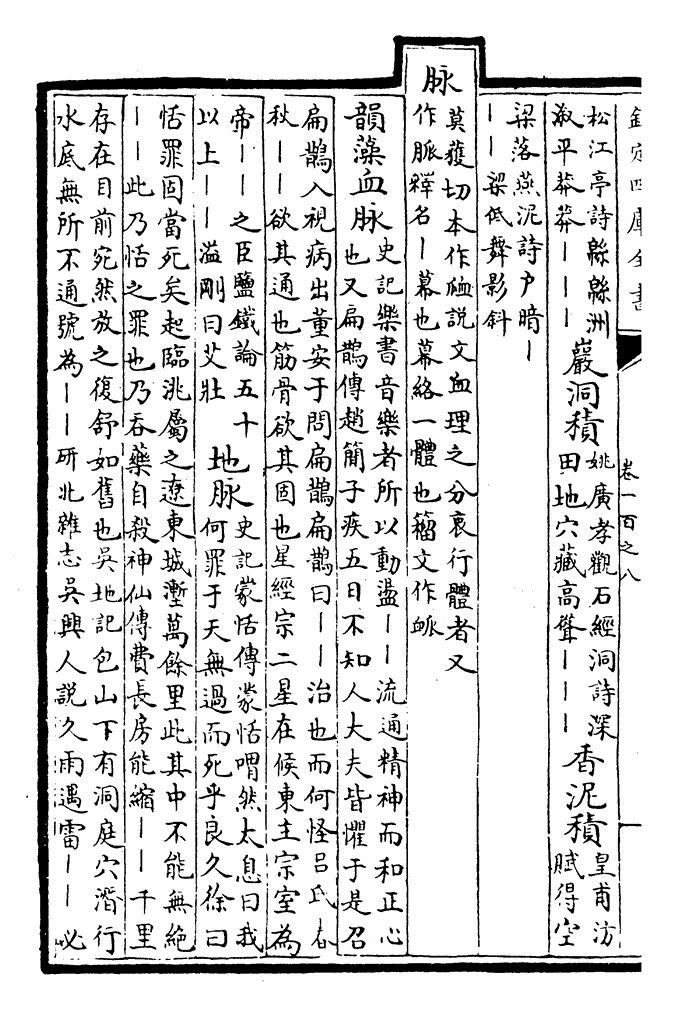 欽定四庫全書
卷一百之八
松江亭詩緜緜洲
漵平莽莽丨丨丨
巖洞積
姚廣孝觀石經洞詩深
田地穴藏高聳丨丨丨
香泥積
皇甫汸
賦得空
梁落燕泥詩户暗丨
丨丨梁低舞影斜
脉
莫獲切本作衇説文血理之分衺行體者又
作脈釋名丨幕也幕絡一體也籀文作䘑
韻藻血脉
史記樂書音樂者所以動盪丨丨流通精神而和正心
也又扁鵲傳趙簡子疾五日不知人大夫皆懼于是召
扁鵲入視病出董安于問扁鵲扁鵲曰丨丨治也而何怪吕氏春
秋丨丨欲其通也筋骨欲其固也星經宗二星在候東主宗室為
帝丨丨之臣鹽鐵論五十
以上丨丨溢剛曰艾壯
地脉
史記蒙恬傳蒙恬喟然太息曰我
何罪于天無過而死乎良久徐曰
恬罪固當死矣起臨洮屬之遼東城塹萬餘里此其中不能無絶
丨丨此乃恬之罪也乃吞藥自殺神仙傳費長房能縮丨丨千里
存在目前宛然放之復舒如舊也吳地記包山下有洞庭穴潛行
水底無所不通號為丨丨硏北雜志吳興人説久雨遇雷丨丨必